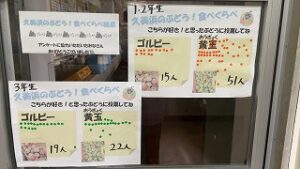 久美浜のぶどう！食べくらべ結果
アンケートに協力いただいたみなさん
ありがとうございました。
1.2年生
久美浜のぶどう！食べくらべ
こちらが好き！と思ったぶどうに投票してね
ゴルビー
おうぎょく
黄玉
15人
51人
3年生
久美浜のぶどう！食べくらべ
こちらが好き！と思ったぶどうに投票してね
ゴルビー
おうぎょく
黄玉
19人
22人